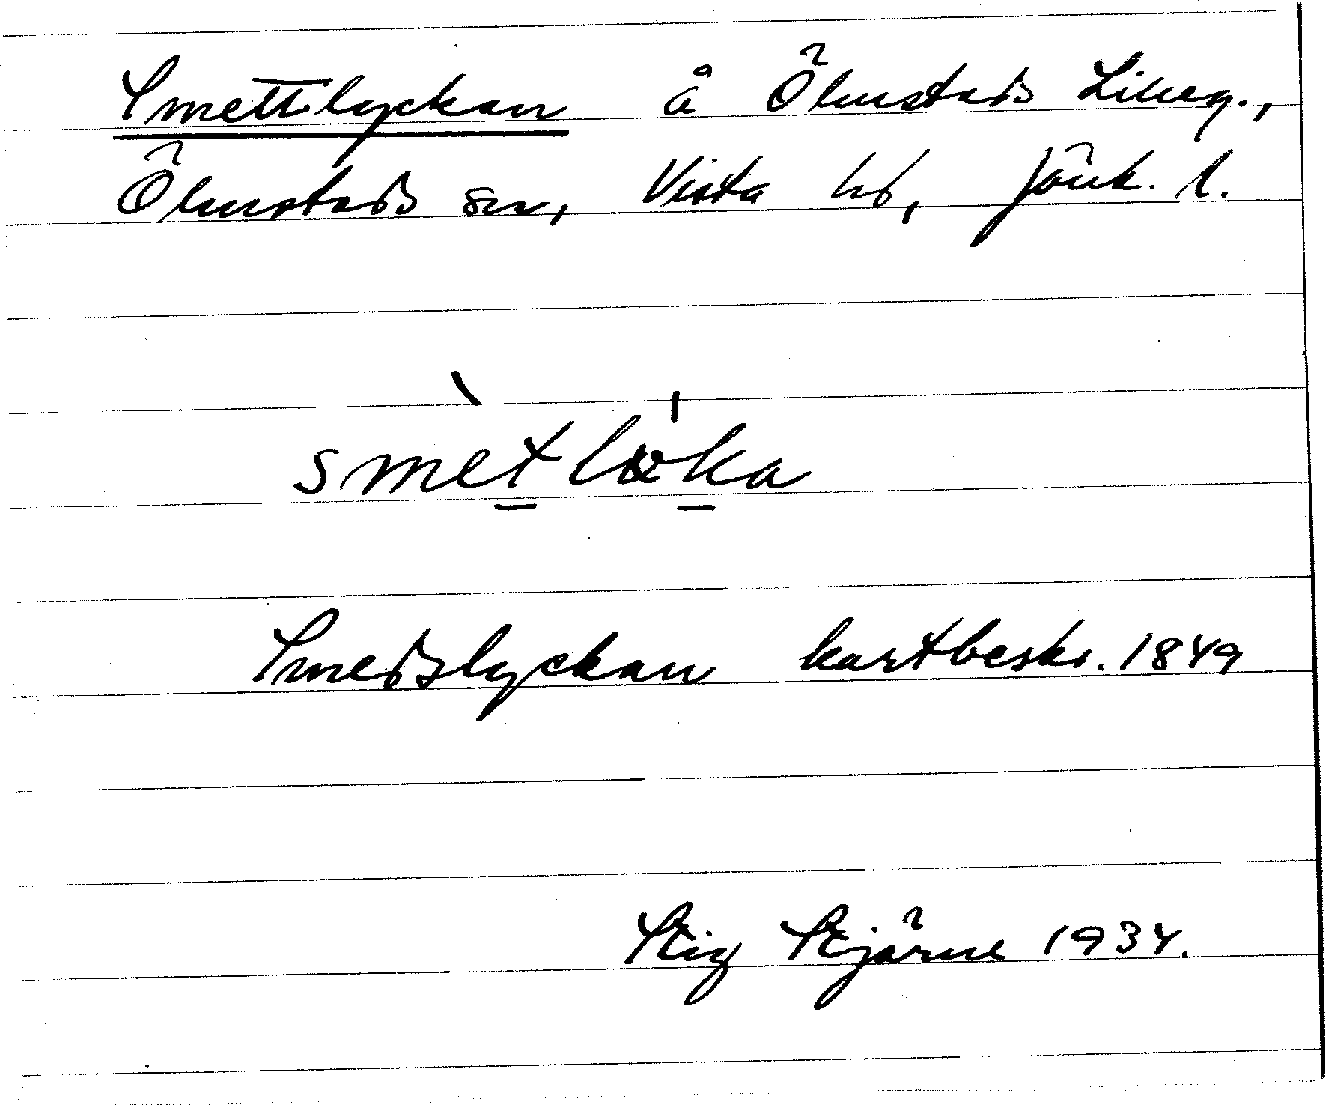 Smettlyckan å Ölmstads Lilleg.,
Ölmstads sn, Vista hd, Jönk. l.
smètlö̍ka
Smedslyckan kartbeskr. 1849
Stig Stjärne 1934.